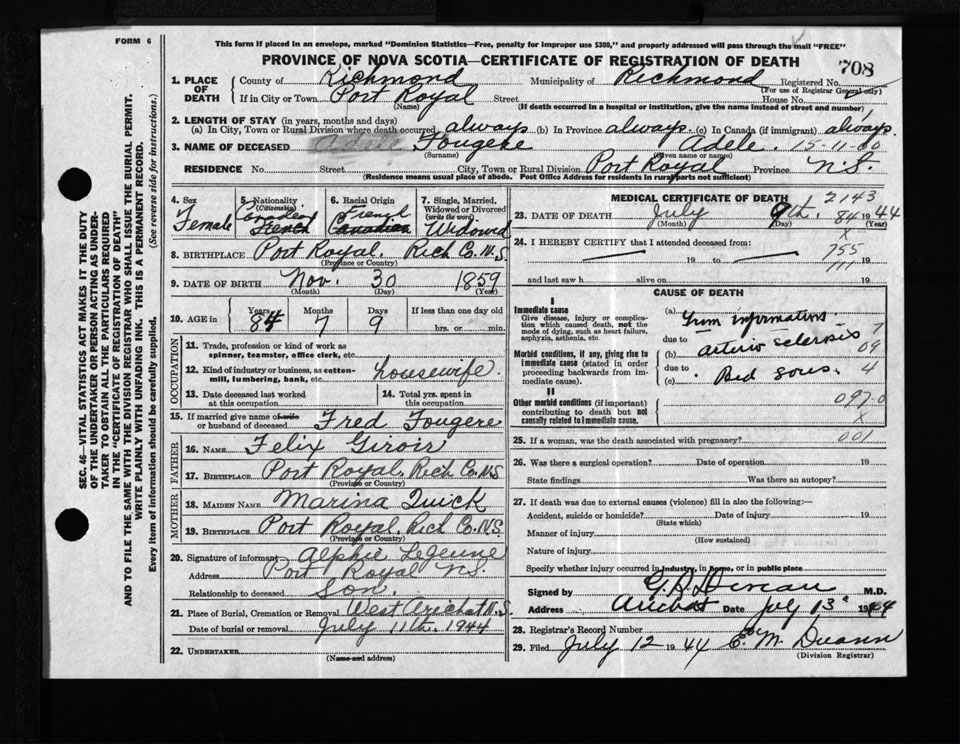 FORM 6
This form if placed in an envelope, marked "Dominion Statistics—Free, penalty for improper use $300," and properly addressed will pass through the mail "FREE"
PROVINCE OF NOVA SCOTIA—CERTIFICATE OF REGISTRATION OF DEATH
708
1. PLACE OF DEATH County of Richmond Municipality of Richmond Registered No.
(For use of Registrar General only)
If in City or Town Port Royal Street House No.
(Name) (If death occurred in a hospital or institution, give the name instead of street and number)
2. LENGTH OF STAY (in years, months and days)
(a) In City, Town or Rural Division where death occurred always (b) In Province always (c) In Canada (if immigrant) always.
3. NAME OF DECEASED Fougere Adele. 15-11-60
(Surname) (Given name or names)
RESIDENCE No. Street City, Town or Rural Division Port Royal Province N.S.
(Residence means usual place of abode. Post Office Address for residents in rural parts not sufficient)
4. Sex Female
5. Nationality (Citizenship) Canadian French
6. Racial Origin French Canadian
7. Single, Married, Widowed or Divorced (write the word) Widowed
8. BIRTHPLACE Port Royal, Rich Co. N.S.
(Province or Country)
9. DATE OF BIRTH Nov. 30 1859
(Month) (Day) (Year)
10. AGE in Years 84 Months 7 Days 9 If less than one day old
hrs. or min.
OCCUPATION
11. Trade, profession or kind of work as spinner, teamster, office clerk, etc.
12. Kind of industry or business, as cotton-mill, lumbering, bank, etc. housewife.
13. Date deceased last worked at this occupation
14. Total yrs. spent in this occupation
15. If married give name of wife or husband of deceased Fred Fougere
FATHER
16. NAME Felix Giroir
17. BIRTHPLACE Port Royal, Rich Co. N.S
(Province or Country)
MOTHER
18. MAIDEN NAME Marina Quick
19. BIRTHPLACE Port Royal, Rich Co. N.S.
(Province or Country)
20. Signature of informant Alphie Lejeune
Address Port Royal N.S.
Relationship to deceased Son.
21. Place of Burial, Cremation or Removal West Arichat N.S.
Date of burial or removal July 11th. 1944
22. UNDERTAKER
(Name and address)
MEDICAL CERTIFICATE OF DEATH
2143
23. DATE OF DEATH July 9th. 84 1944
(Month) (Day) (Year)
X
24. I HEREBY CERTIFY that I attended deceased from:
755
19 to 19
111
and last saw h alive on 19
CAUSE OF DEATH
I
Immediate cause
Give disease, injury or complication which caused death, not the mode of dying, such as heart failure, asphyxia, asthenia, etc.
(a) From information.
due to 7
Morbid conditions, if any, giving rise to immediate cause (stated in order proceeding backwards from immediate cause).
(b) Arterio sclerosis 09
due to 4
(c) Bed sores.
II
Other morbid conditions (if important) contributing to death but not causally related to immediate cause.
097-0
X
25. If a woman, was the death associated with pregnancy? 001
26. Was there a surgical operation? Date of operation 19
State findings Was there an autopsy?
27. If death was due to external causes (violence) fill in also the following:—
Accident, suicide or homicide? Date of injury 19
(State which)
Manner of injury
(How sustained)
Nature of injury
Specify whether injury occurred in industry, in home, or in public place
Signed by M.D.
Address Arichat Date July 13th 1944
28. Registrar's Record Number
29. Filed July 12 1944 E. M. Duann
(Division Registrar)
SEC. 46—VITAL STATISTICS ACT MAKES IT THE DUTY
OF THE UNDERTAKER OR PERSON ACTING AS UNDER-
TAKER TO OBTAIN ALL THE PARTICULARS REQUIRED
IN THE "CERTIFICATE OF REGISTRATION OF DEATH"
AND TO FILE THE SAME WITH THE DIVISION REGISTRAR WHO SHALL ISSUE THE BURIAL PERMIT.
WRITE PLAINLY WITH UNFADING INK. THIS IS A PERMANENT RECORD.
Every item of information should be carefully supplied. (See reverse side for instructions.)